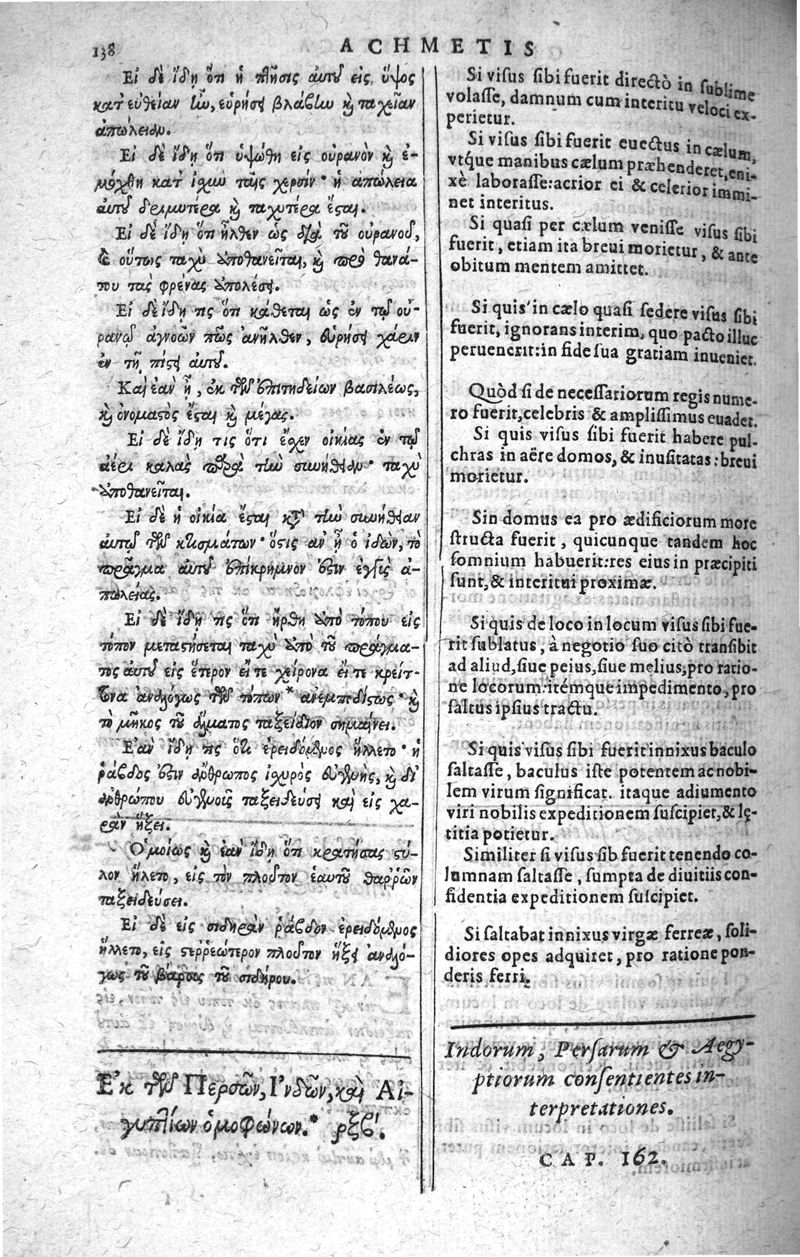 138
ACHMETIS
Εἰ δὲ ἴδῃ ὅτι ἡ πτῆσις αὐτοῦ εἰς ὕψος
κατ' εὐθεῖαν ἦν, εὑρήσει βλάβην καὶ ταχεῖαν
ἀπώλειαν.
Εἰ δὲ ἴδῃ ὅτι ὑψώθη εἰς οὐρανὸν καὶ ἐ-
μόχθη κατ' ἰχὺν ταῖς χερσίν· ἡ ἀπώλεια
αὐτοῦ δριμυτέρα καὶ ταχυτέρα ἔσται.
Εἰ δὲ ἴδῃ ὅτι ἦλθεν ὡς διὰ τοῦ οὐρανοῦ,
καὶ οὕτως ταχὺ ἀποθανεῖται, καὶ πρὸ θανά-
του τὰς φρένας ἀπολέσει.
Εἰ δὲ ἴδῃ τις ὅτι κάθεται ὡς ἐν τῷ οὐ-
ρανῷ ἀγνοῶν πῶς ἀνῆλθεν, εὑρήσει χάριν
ἐν τῇ πίστει αὐτοῦ.
Καὶ ἐὰν ἦ, ἐκ τῶν ἐπιτηδείων βασιλέως,
καὶ ὀνομαστὸς ἔσται καὶ μέγας.
Εἰ δὲ ἴδῃ τις ὅτι ἔχεν οἰκίας ἐν τῷ
ἀέρι καλὰς παρὰ τὴν συνήθειαν· ταχὺ
ἀποθανεῖται.
Εἰ δὲ ἡ οἰκία ἔσται κατὰ τὴν συνήθειαν
αὐτῷ τῶν κτισμάτων· ὅστις ἂν ἦ ὁ ἰδὼν, τὸ
πρᾶγμα αὐτοῦ ἐπίκρημνον ἐστὶν ἐγγὺς ἀ-
πωλείας.
Εἰ δὲ ἴδῃ τις ὅτι ἤρθη ἀπὸ τόπου εἰς
τόπον μεταστήσεται ταχὺ ἀπὸ τοῦ πράγμα-
τος αὐτοῦ εἰς ἕτερον εἴτε χείρονα εἴτε κρείτ-
τονα ἀναλόγως τῶν τόπων* ἀνεμποδίστως· καὶ
τὸ μῆκος τοῦ ἅλματος ταξείδιον σημαίνει.
Ἐὰν ἴδῃ τις ὅτι ἐρειδόμενος ἥλλετο· ἡ
ῥάβδος ἐστὶν ἄνθρωπος ἰχυρὸς εὐγενὴς, καὶ δι'
ἀνθρώπου εὐγενοῦς ταξειδεύσει καὶ εἰς χα-
ρὰν ἥξει.
Ὁμοίως καὶ ἐὰν ἴδῃ ὅτι κρατήσας ξύ-
λον ἥλετο, εἰς τὸν πλοῦτον ἑαυτοῦ θαρρῶν
ταξειδεύσει.
Εἰ δὲ εἰς σιδηρὰν ῥάβδον ἐρειδόμενος
ἥλλετο, εἰς στερρεώτερον πλοῦτον ἥξει ἀναλό-
γως τοῦ βάρους τοῦ σιδήρου.
Ἐκ τῶν Περσῶν, Ἰνδῶν, καὶ Αἰ-
γυπτίων ὁμοφώνων.* ρξβʹ.
Si visus sibi fuerit directò in sublime
volasse, damnum cum interitu veloci ex-
perietur.
Si visus sibi fuerit euectus in cælum,
vtque manibus cælum præhenderet, eni-
xè laborasse: acrior ei & celerior immi-
net interitus.
Si quasi per cælum venisse visus sibi
fuerit, etiam ita breui morietur, & ante
obitum mentem amittet.
Si quis in cælo quasi sedere visus sibi
fuerit, ignorans interim, quo pacto illuc
peruenerit: in fide sua gratiam inueniet.
Quòd si de necessariorum regis nume-
ro fuerit, celebris & amplissimus euadet.
Si quis visus sibi fuerit habere pul-
chras in aëre domos, & inusitatas: breui
morietur.
Sin domus ea pro ædificiorum more
structa fuerit, quicunque tandem hoc
somnium habuerit: res eius in præcipiti
sunt, & interitui proximæ.
Si quis de loco in locum visus sibi fue-
rit sublatus, à negotio suo citò transibit
ad aliud, siue peius, siue melius, pro ratio-
ne locorum: itémque impedimento, pro
saltus ipsius tractu.
Si quis visus sibi fuerit innixus baculo
saltasse, baculus iste potentem ac nobi-
lem virum significat. itaque adiumento
viri nobilis expeditionem suscipiet, & lę-
titia potietur.
Similiter si visus sib fuerit tenendo co-
lumnam saltasse, sumpta de diuitiis con-
fidentia expeditionem suscipiet.
Si saltabat innixus virgæ ferreæ, soli-
diores opes adquiret, pro ratione pon-
deris ferri.
Indorum, Persarum & Aegy-
ptiorum consentientes in-
terpretationes.
CAP. 162.